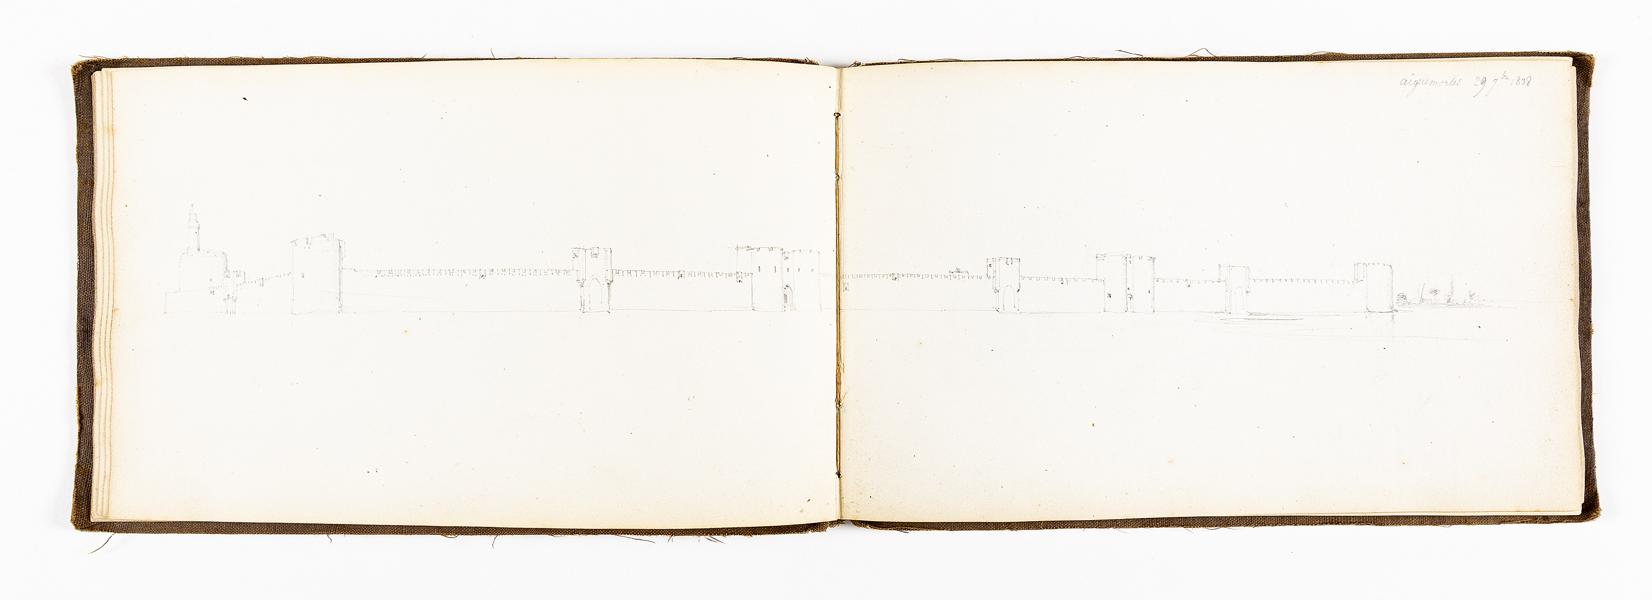 aiguemortes 29 7bre 1838